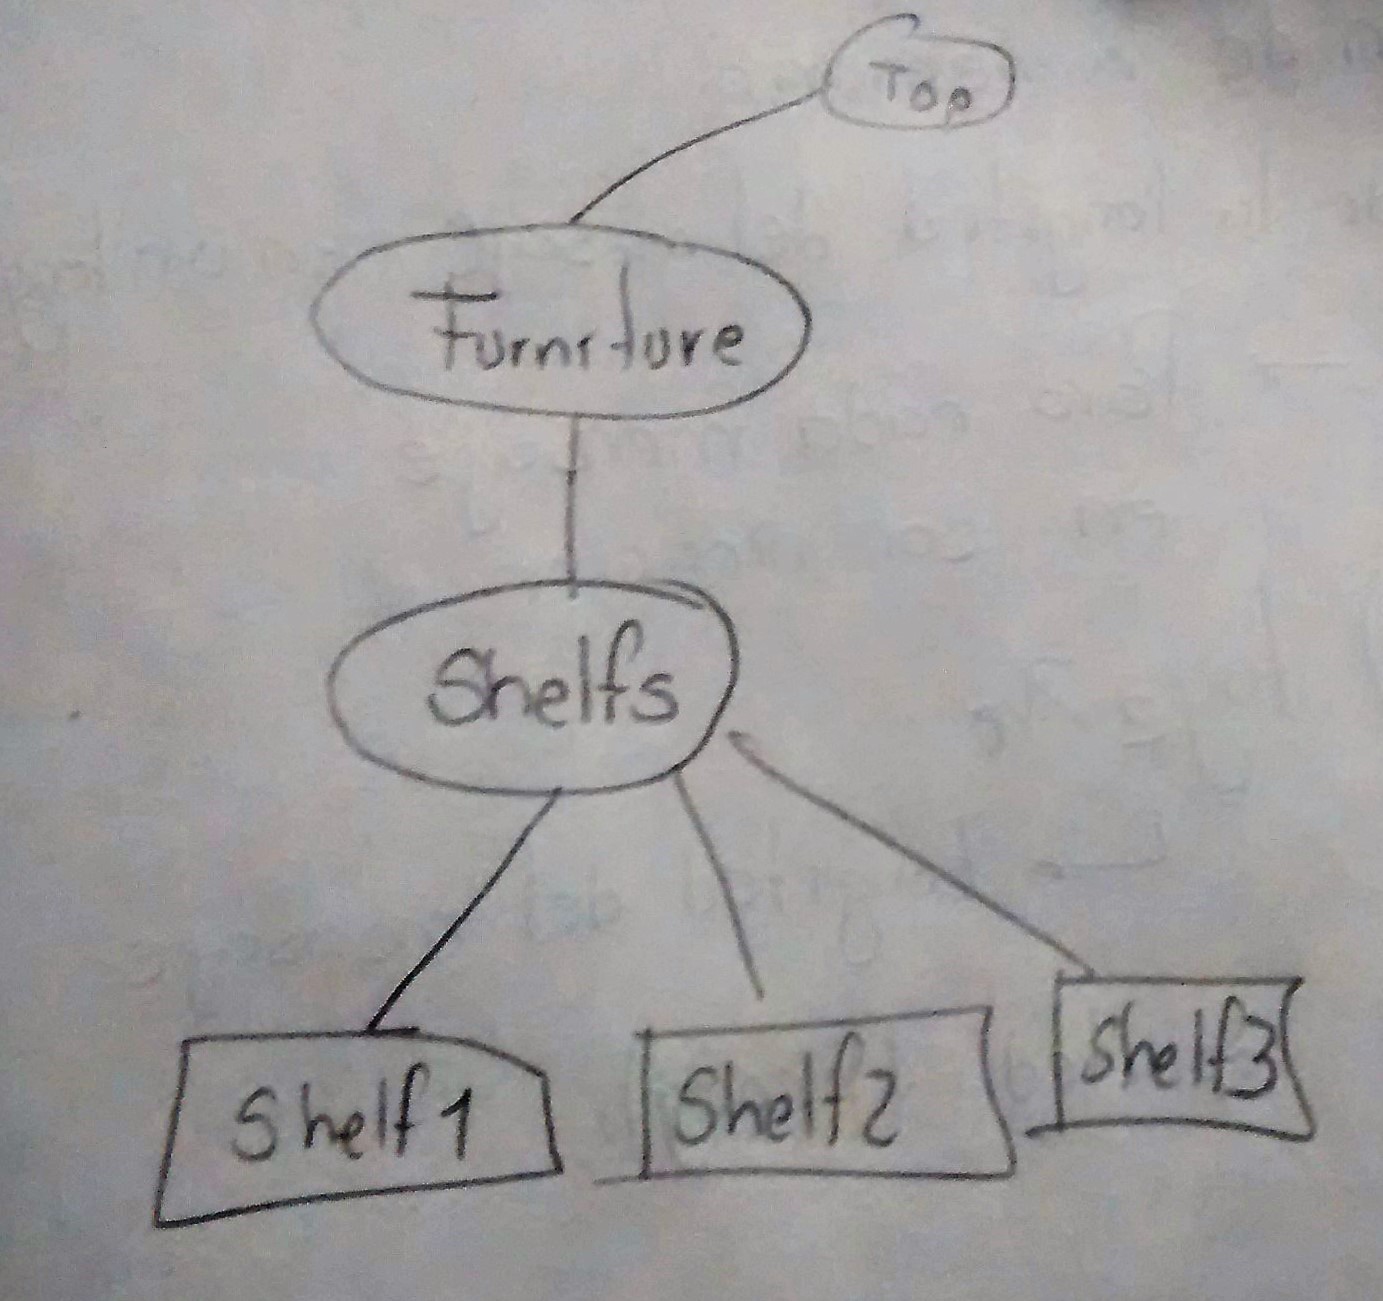 Top
Furniture
Shelfs
Shelf1
Shelf2
Shelf3